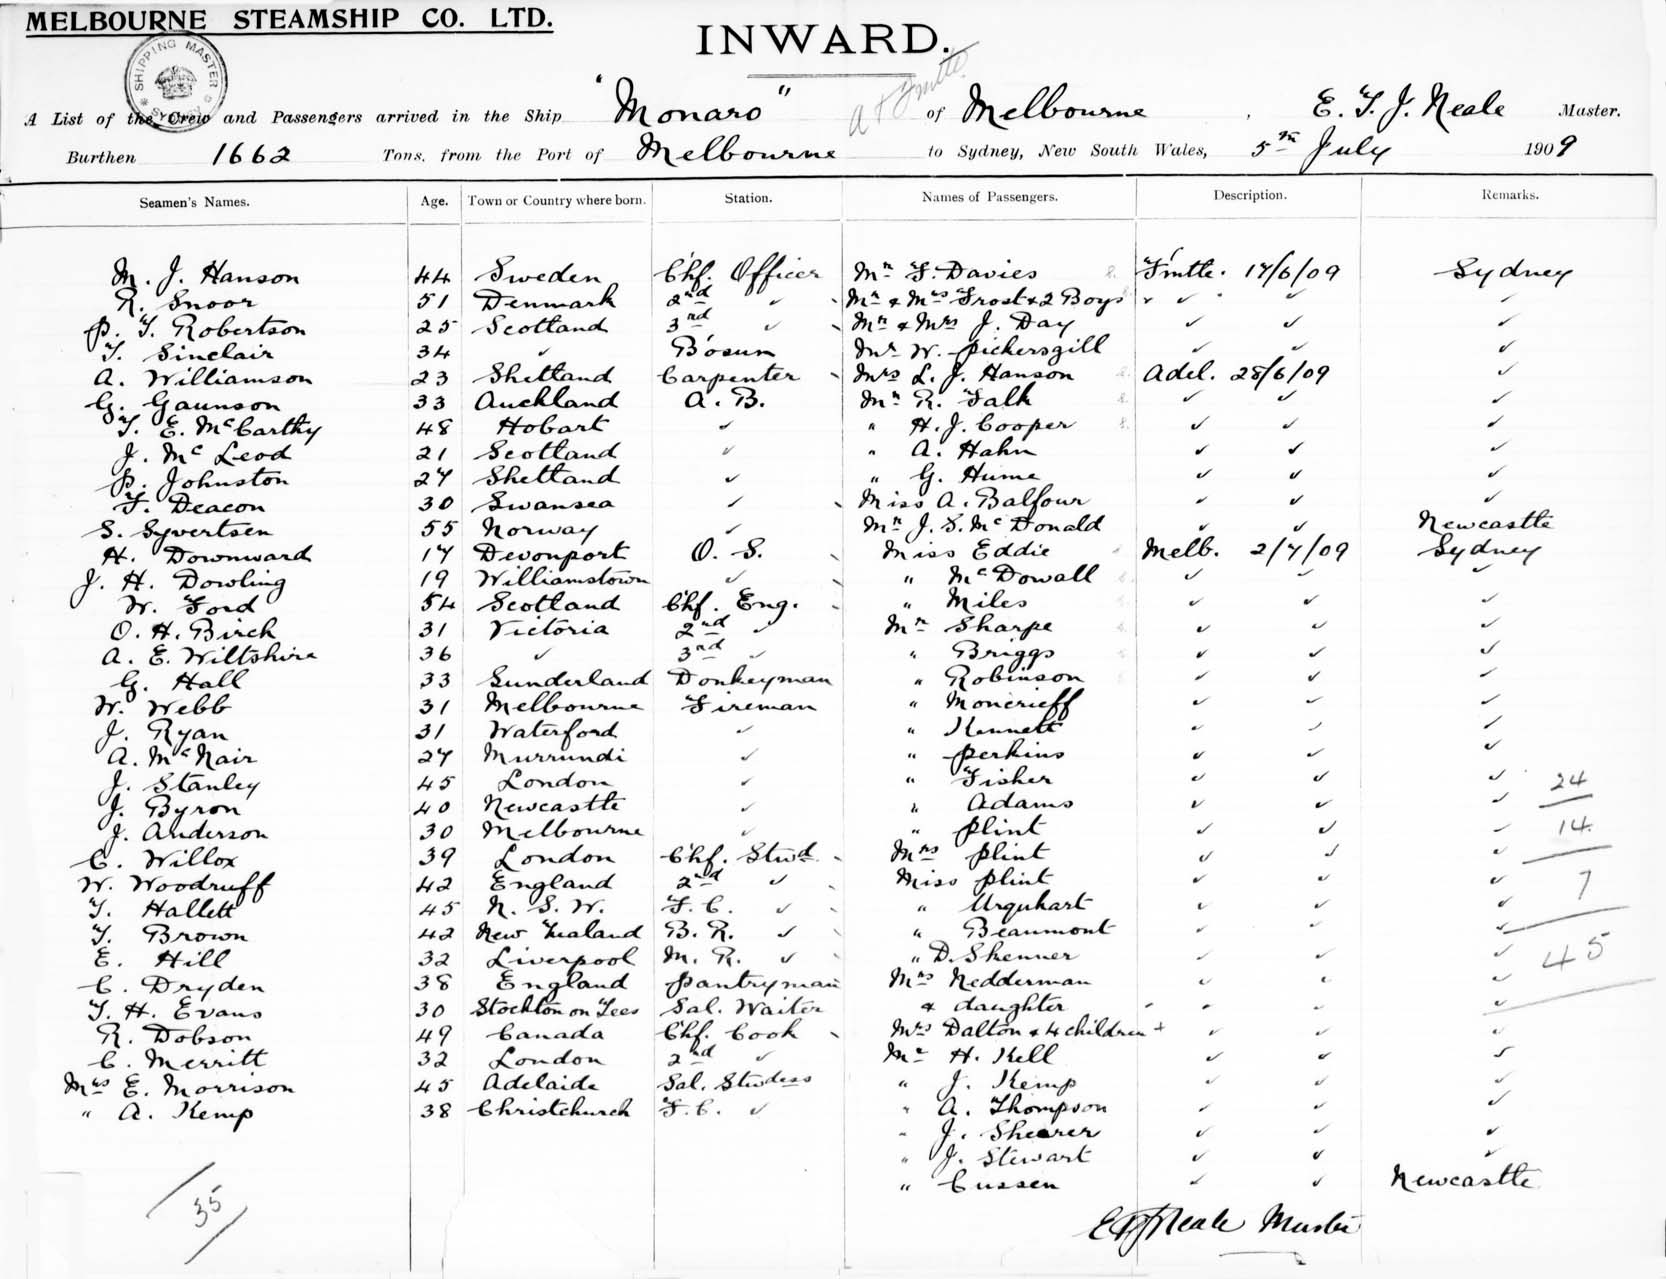 MELBOURNE STEAMSHIP CO. LTD.
INWARD.
SHIPPING MASTER SYDNEY
A List of the Crew and Passengers arrived in the Ship "Monaro" of Melbourne, E. T. J. Neale Master.
Burthen 1662 Tons. from the Port of Melbourne to Sydney, New South Wales, 5th July 1909
Seamen's Names. Age. Town or Country where born. Station. Names of Passengers. Description. Remarks.
M. J. Hanson 44 Sweden Chf. Officer Mr F. Davies Fmtle. 17/6/09 Sydney
R. Snoor 51 Denmark 2nd ✓ Mr & Mrs Frost & 2 Boys ✓ ✓ ✓
P. T. Robertson 25 Scotland 3rd ✓ Mr & Mrs J. Day ✓ ✓ ✓
T. Sinclair 34 ✓ Bosun Mr W. Pickersgill ✓ ✓ ✓
A. Williamson 23 Shetland Carpenter Mrs L. J. Hanson Adel. 28/6/09 ✓
G. Gaunson 33 Auckland A. B. Mr R. Falk ✓ ✓ ✓
T. E. McCarthy 48 Hobart ✓ " H. J. Cooper ✓ ✓ ✓
J. McLeod 21 Scotland ✓ " A. Hahn ✓ ✓ ✓
P. Johnston 27 Shetland ✓ " G. Hume ✓ ✓ ✓
T. Deacon 30 Swansea ✓ Miss A. Balfour ✓ ✓ ✓
S. Syvertsen 55 Norway ✓ Mr J. S. McDonald ✓ ✓ Newcastle
H. Downward 17 Devonport O. S. Miss Eddie Melb. 2/7/09 Sydney
J. H. Dowling 19 Williamstown ✓ " McDowall ✓ ✓ ✓
W. Ford 54 Scotland Chf. Eng. " Miles ✓ ✓ ✓
O. H. Birch 31 Victoria 2nd ✓ Mr Sharpe ✓ ✓ ✓
A. E. Wiltshire 36 ✓ 3rd ✓ " Briggs ✓ ✓ ✓
G. Hall 33 Sunderland Donkeyman " Robinson ✓ ✓ ✓
W. Webb 31 Melbourne Fireman " Moncrieff ✓ ✓ ✓
J. Ryan 31 Waterford ✓ " Kennett ✓ ✓ ✓
A. McNair 27 Murrundi ✓ " Perkins ✓ ✓ ✓
J. Stanley 45 London ✓ " Fisher ✓ ✓ ✓ 24
J. Byron 40 Newcastle ✓ " Adams ✓ ✓ ✓
J. Anderson 30 Melbourne ✓ " Plint ✓ ✓ ✓ 14
C. Willox 39 London Chf. Stwd. Mrs Plint ✓ ✓ ✓
W. Woodruff 42 England 2nd ✓ Miss Plint ✓ ✓ ✓ 7
T. Hallett 45 N. S. W. F. C. ✓ " Urquhart ✓ ✓ ✓
T. Brown 42 New Zealand B. R. ✓ " Beaumont ✓ ✓ ✓
E. Hill 32 Liverpool M. R. ✓ " D. Skenner ✓ ✓ ✓ 45
C. Dryden 38 England Pantryman Mrs Nedderman ✓ ✓ ✓
T. H. Evans 30 Stockton on Tees Sal. Waiter & daughter ✓ ✓ ✓
R. Dobson 49 Canada Chf. Cook Mrs Dalton & 4 children ✓ ✓ ✓
C. Merritt 32 London 2nd ✓ Mr H. Kell ✓ ✓ ✓
Mrs E. Morrison 45 Adelaide Sal. Stwdess " J. Kemp ✓ ✓ ✓
" A. Kemp 38 Christchurch F. C. ✓ " A. Thompson ✓ ✓ ✓
" J. Shearer ✓ ✓ ✓
" J. Stewart ✓ ✓ ✓
" Cussen ✓ ✓ Newcastle
35
E T J Neale Master